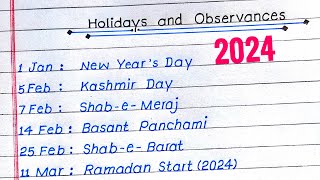 Holidays and Observances
2024
1 Jan : New Year's Day
5 Feb : Kashmir Day
7 Feb : Shab-e-Meraj
14 Feb : Basant Panchami
25 Feb : Shab-e-Barat
11 Mar : Ramadan Start (2024)